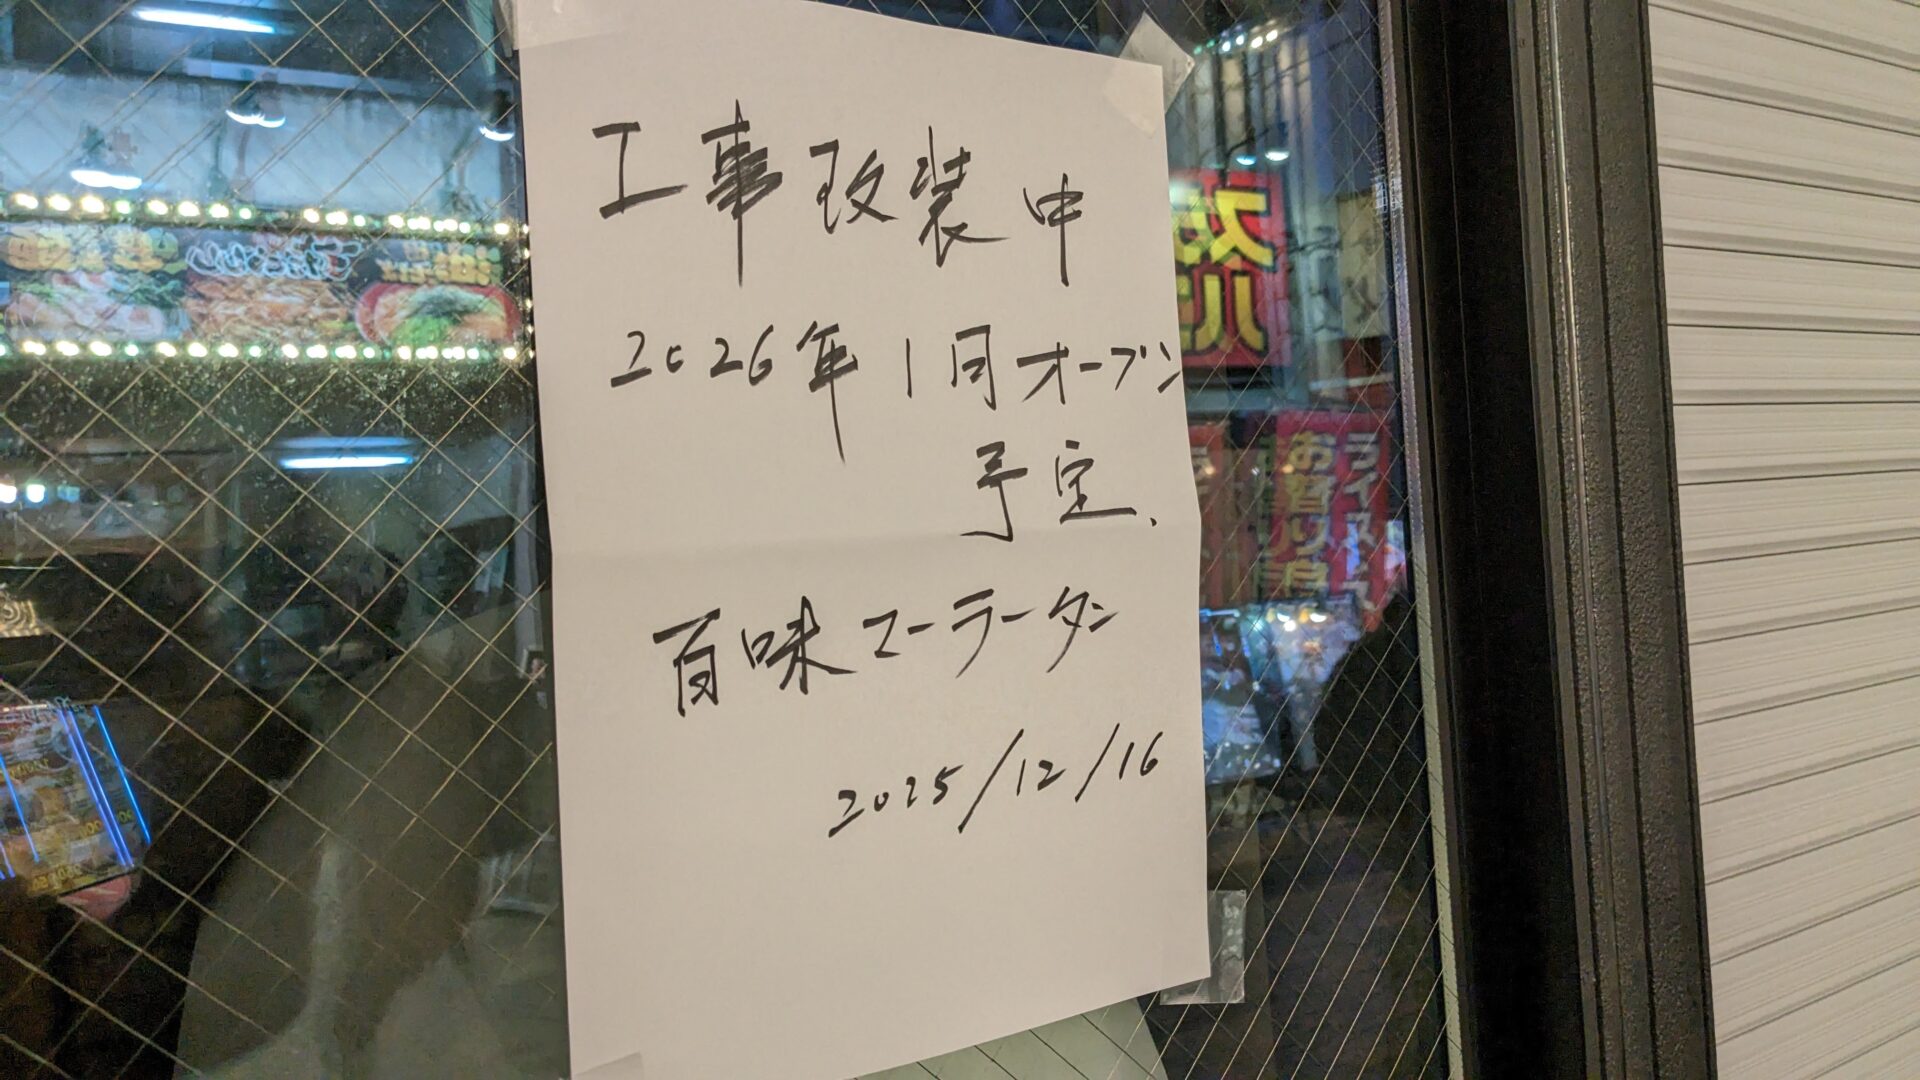 工事改装中
2026年1月オープン
予定、
百味マーラータン
2025/12/16
ライス
お替り自